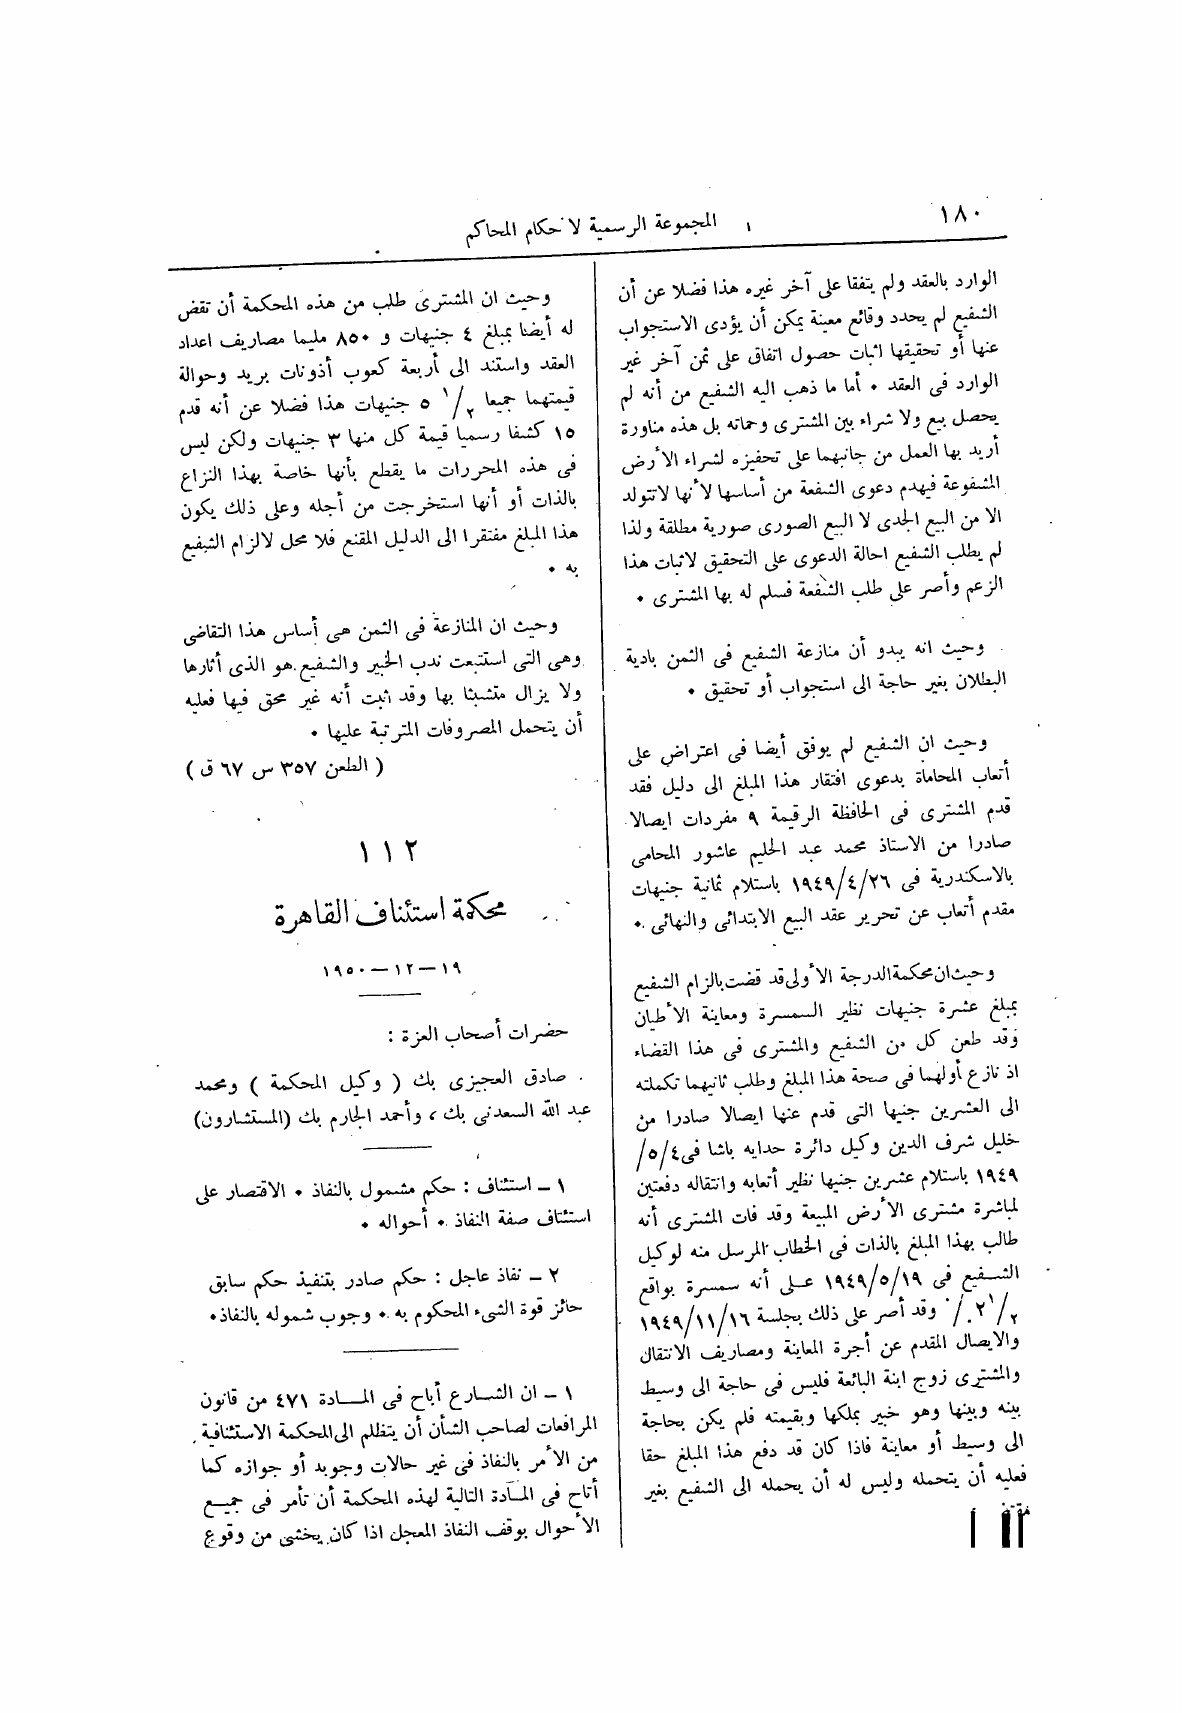 ١٨٠
المجموعة الرسمية لأحكام المحاكم
الوارد بالعقد ولم يتفقا على آخر غيره هذا فضلا عن أن
الشفيع لم يحدد وقائع معينة يمكن أن يؤدى الاستجواب
عنها أو تحقيقها اثبات حصول اتفاق على ثمن آخر غير
الوارد فى العقد ٠ أما ما ذهب اليه الشفيع من أنه لم
يحصل بيع ولا شراء بين المشترى وحماته بل هذه مناورة
أريد بها العمل من جانبهما على تحفيزه لشراء الأرض
المشفوعة فيهدم دعوى الشفعة من أساسها لأنها لاتتولد
الا من البيع الجدى لا البيع الصورى صورية مطلقة ولذا
لم يطلب الشفيع احالة الدعوى على التحقيق لاثبات هذا
الزعم وأصر على طلب الشفعة فسلم له بها المشترى ٠
وحيث انه يبدو أن منازعة الشفيع فى الثمن بادية
البطلان بغير حاجة الى استجواب أو تحقيق ٠
وحيث ان الشفيع لم يوفق أيضا فى اعتراض على
أتعاب المحاماة بدعوى افتقار هذا المبلغ الى دليل فقد
قدم المشترى فى الحافظة الرقيمة ٩ مفردات ايصالا
صادرا من الاستاذ محمد عبد الحليم عاشور المحامى
بالاسكندرية فى ١٩٤٩/٤/٢٦ باستلام ثمانية جنيهات
مقدم أتعاب عن تحرير عقد البيع الابتدائى والنهائى ٠
وحيث ان محكمة الدرجة الأولى قد قضت بالزام الشفيع
بمبلغ عشرة جنيهات نظير السمسرة ومعاينة الأطيان
وقد طعن كل من الشفيع والمشترى فى هذا القضاء
اذ نازع أولهما فى صحة هذا المبلغ وطلب ثانيهما تكملته
الى العشرين جنيها التى قدم عنها ايصالا صادرا من
خليل شرف الدين وكيل دائرة حدايه باشا فى ٥/٤/
١٩٤٩ باستلام عشرين جنيها نظير أتعابه وانتقاله دفعتين
لمباشرة مشترى الأرض المبيعة وقد فات المشترى أنه
طالب بهذا المبلغ بالذات فى الخطاب المرسل منه لوكيل
الشفيع فى ١٩٤٩/٥/١٩ على أنه سمسرة بواقع
٢ ١/٢ ٪ وقد أصر على ذلك بجلسة ١٩٤٩/١١/١٦
والايصال المقدم عن أجرة المعاينة ومصاريف الانتقال
والمشترى زوج ابنة البائعة فليس فى حاجة الى وسيط
بينه وبينها وهو خبير بملكها وبقيمته فلم يكن بحاجة
الى وسيط أو معاينة فاذا كان قد دفع هذا المبلغ حقا
فعليه أن يتحمله وليس له أن يحمله الى الشفيع بغير
مقتض
وحيث ان المشترى طلب من هذه المحكمة أن تقض
له أيضا بمبلغ ٤ جنيهات و ٨٥٠ مليما مصاريف اعداد
العقد واستند الى أربعة كعوب أذونات بريد وحوالة
قيمتهما جميعا ٥ ١/٢ جنيهات هذا فضلا عن أنه قدم
١٥ كشفا رسميا قيمة كل منها ٣ جنيهات ولكن ليس
فى هذه المحررات ما يقطع بأنها خاصة بهذا النزاع
بالذات أو أنها استخرجت من أجله وعلى ذلك يكون
هذا المبلغ مفتقرا الى الدليل المقنع فلا محل لالزام الشفيع
به ٠
وحيث ان المنازعة فى الثمن هى أساس هذا التقاضى
وهى التى استتبعت ندب الخبير والشفيع هو الذى أثارها
ولا يزال متشبثا بها وقد ثبت أنه غير محق فيها فعليه
أن يتحمل المصروفات المترتبة عليها ٠
( الطعن ٣٥٧ س ٦٧ ق )
١١٢
محكمة استئناف القاهرة
١٩ – ١٢ – ١٩٥٠
حضرات أصحاب العزة :
صادق العجيزى بك ( وكيل المحكمة ) ومحمد
عبد الله السعدنى بك ، وأحمد الجارم بك (المستشارون)
١ – استئناف : حكم مشمول بالنفاذ ٠ الاقتصار على
استئناف صفة النفاذ ٠ أحواله ٠
٢ – نفاذ عاجل : حكم صادر بتنفيذ حكم سابق
حائز قوة الشىء المحكوم به ٠ وجوب شموله بالنفاذ ٠
١ – ان الشارع أباح فى المادة ٤٧١ من قانون
المرافعات لصاحب الشأن أن يتظلم الى المحكمة الاستئنافية
من الأمر بالنفاذ فى غير حالات وجوبه أو جوازه كما
أتاح فى المادة التالية لهذه المحكمة أن تأمر فى جميع
الأحوال بوقف النفاذ المعجل اذا كان يخشى من وقوع